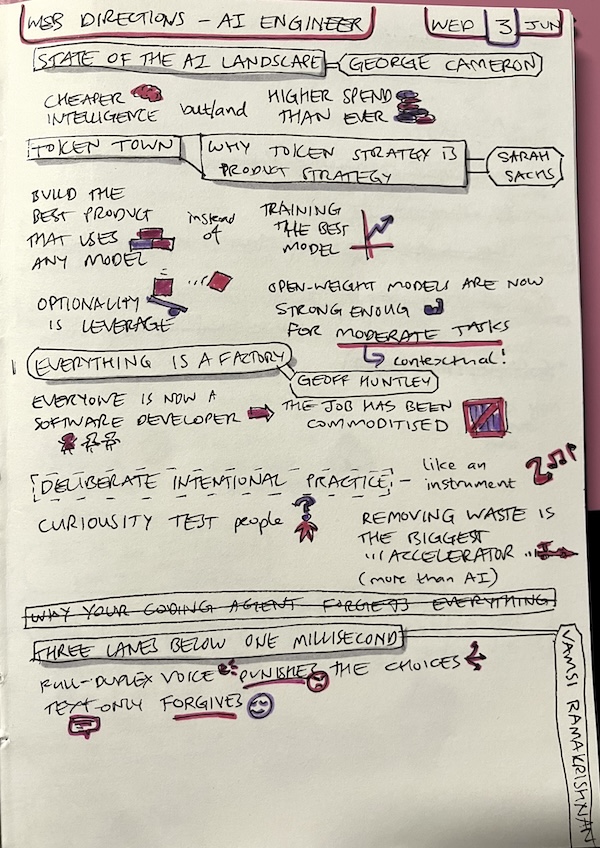 WEB DIRECTIONS - AI ENGINEER
WED 3 JUN
STATE OF THE AI LANDSCAPE
GEORGE CAMERON
CHEAPER
INTELLIGENCE
but/and
HIGHER SPEND
THAN EVER
TOKEN TOWN
WHY TOKEN STRATEGY IS
PRODUCT STRATEGY
SARAH
SACHS
BUILD THE
BEST PRODUCT
THAT USES
ANY MODEL
instead
of
TRAINING
THE BEST
MODEL
OPTIONALITY
IS LEVERAGE
OPEN-WEIGHT MODELS ARE NOW
STRONG ENOUG
FOR MODERATE TASKS
contextual!
EVERYTHING IS A FACTORY
GEOFF HUNTLEY
EVERYONE IS NOW A
SOFTWARE DEVELOPER
THE JOB HAS BEEN
COMMODITISED
DELIBERATE INTENTIONAL PRACTICE -
like an
instrument
CURIOUSITY TEST people
REMOVING WASTE IS
THE BIGGEST
... ACCELERATOR ...
(more than AI)
WHY YOUR CODING AGENT FORGETS EVERYTHING
THREE LANES BELOW ONE MILLISECOND
VAMSI RAMAKRISHNAN
FULL-DUPLEX VOICE PUNISHES THE CHOICES
TEXT-ONLY FORGIVES